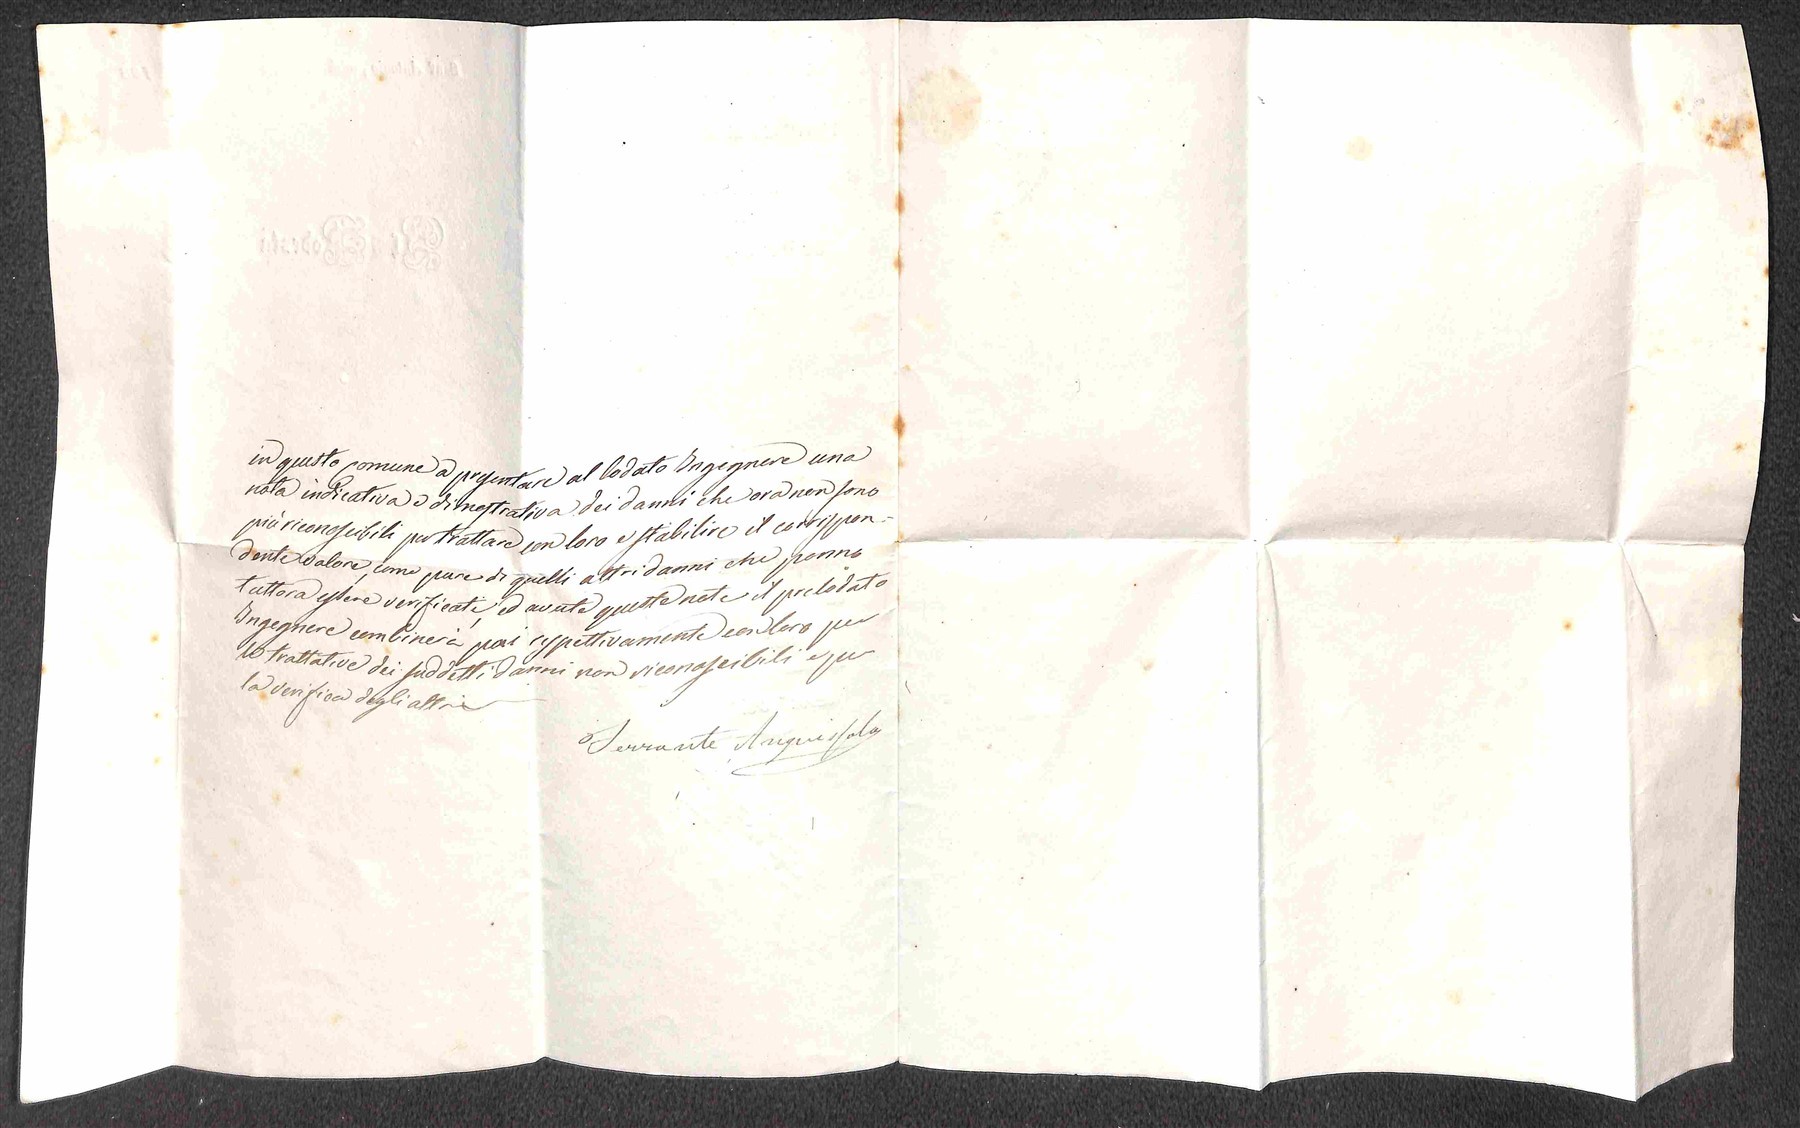 in questo comune a presentare al lodato Ingegnere una
nota indicativa e dimostrativa dei danni che ora non sono
più riconoscibili per trattare con loro e stabilire il corrispon=
dente valore, come pure di quelli altri danni che ponno
tuttora essere verificati, ed avute queste note il prelodato
Ingegnere combinerà poi rispettivamente con loro per
le trattative dei suddetti danni non riconoscibili e per
la verifica degli altri
Ferrante Anguissola